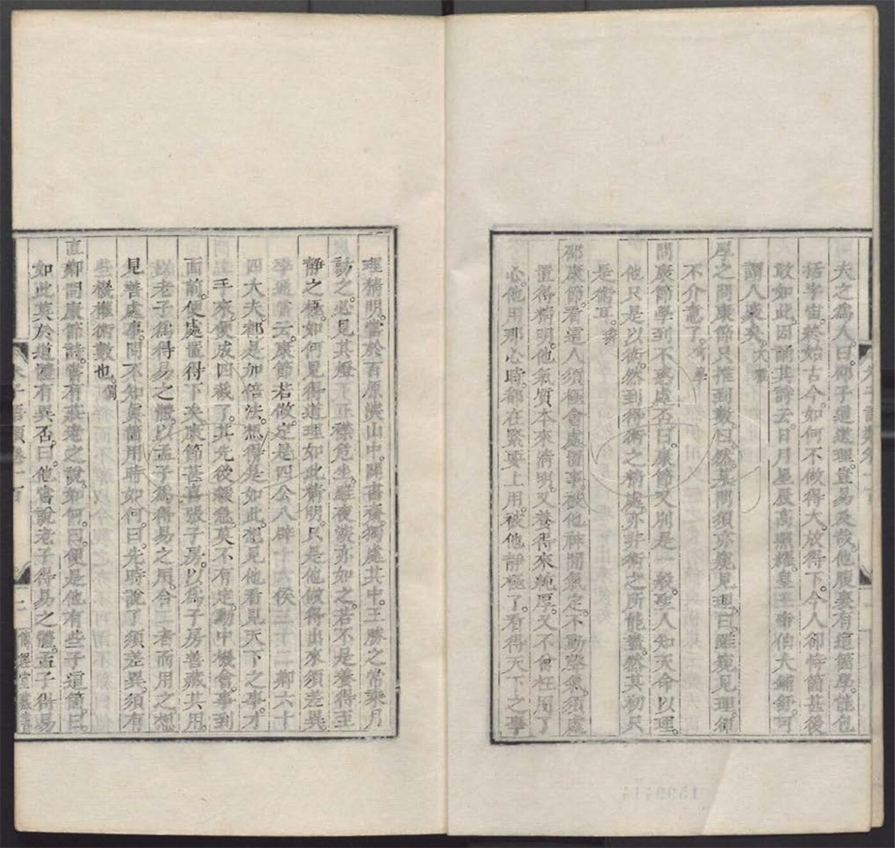 夫之為人曰邵子這道理豈易及哉他腹裏有這箇學能包
括宇宙終始古今如何不做得大放得下今人卻恃箇甚後
敢如此因誦其詩云日月星辰高照耀皇王帝伯大鋪舒可
謂人豪矣大雅
厚之問康節只推到數曰然某問須亦窺見理曰雖窺見理卻
不介意了可學
問康節學到不惑處否曰康節又別是一般聖人知天命以理
他只是以術然到得術之精處亦非術之所能盡然其初只
是術耳
邵康節看這人須極會處置事被他神閒氣定不動聲氣須處
置得精明他氣質本來清明又養得來純厚又不曾枉用了
心他用那心時都在緊要上用被他靜極了看得天下之事
理精明嘗於百原深山中闢書齋獨處其中王勝之常乘月
訪之必見其燈下正襟危坐雖夜深亦如之若不是養得至
靜之極如何見得道理如此精明只是他做得出來須差異
季通嘗云康節若做定是四公八辟十六侯三十二卿六十
四大夫都是加倍法想得是如此想見他看見天下之事才
上手來便成四截了其先後緩急莫不有定動中機會事到
面前便處置得下矣康節甚喜張子房以為子房善藏其用
以老子為得易之體以孟子為得易之用合二者而用之想
見善處事問不知真箇用時如何曰先時說了須差異須有
些機權術數也僩
直卿問康節詩嘗有莊老之說如何曰便是他有些子這箇曰
如此莫於道體有異否曰他嘗說老子得易之體孟子得易
朱子語類卷一百